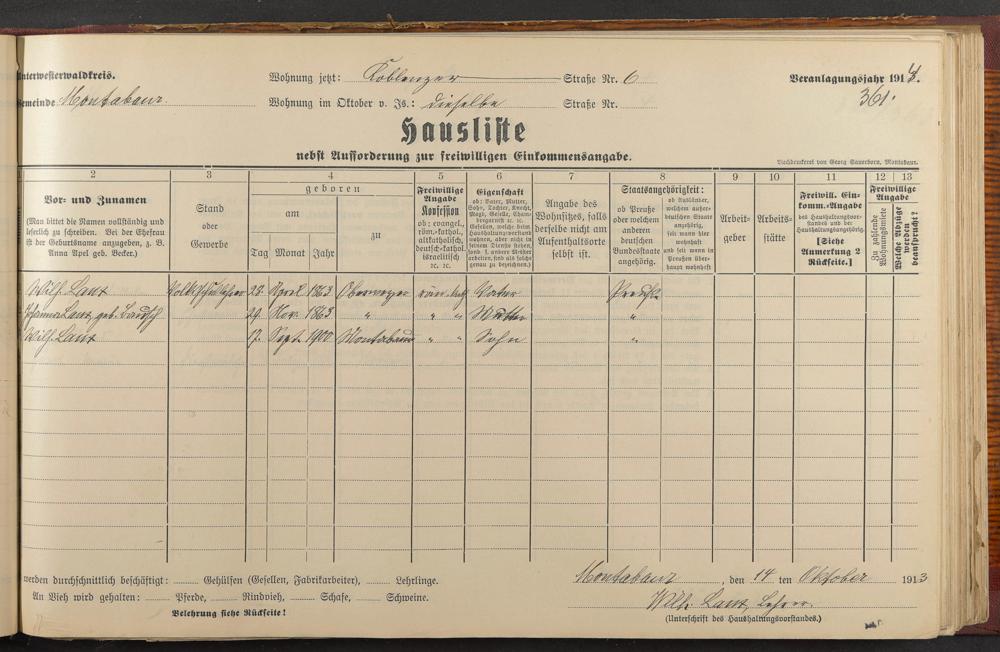 Unterwesterwaldkreis. Wohnung jetzt: Koblenzer Straße Nr. 6 Veranlagungsjahr 1914.
Gemeinde Montabaur. Wohnung im Oktober v. Js.: dieselbe Straße Nr. 361.
Hausliste
nebst Aufforderung zur freiwilligen Einkommensangabe.
Buchdruckerei von Georg Sauerborn, Montabaur.
2 3 4 5 6 7 8 9 10 11 12 13
Vor- und Zunamen
(Man bittet die Namen vollständig und
leserlich zu schreiben. Bei der Ehefrau
ist der Geburtsname anzugeben, z. B.
Anna Apel geb. Becker.)
Stand
oder
Gewerbe
geboren
am
Tag Monat Jahr
zu
Freiwillige
Angabe
Konfession
ob: evangel.,
röm.-kathol.,
altkatholisch,
deutsch-kathol.
israelitisch
ec. ec.
Eigenschaft
ob: Vater, Mutter,
Sohn, Tochter, Knecht,
Magd, Geselle, Cham-
bregarnist ec. ec.
Gesellen, welche beim
Haushaltungsvorstand
wohnen, aber nicht in
seinem Dienste stehen,
sond. b. andern Meister
arbeiten, sind als solche
genau zu bezeichnen.)
Angabe des
Wohnsitzes, falls
derselbe nicht am
Aufenthaltsorte
selbst ist.
Staatsangehörigkeit:
ob Preuße
oder welchem
anderen
deutschen
Bundesstaate
angehörig.
ob Ausländer,
welchem außer-
deutschen Staate
angehörig,
seit wann hier
wohnhaft
und seit wann in
Preußen über-
haupt wohnhaft
Arbeit-
geber
Arbeits-
stätte
Freiwill. Ein-
komm.-Angabe
des Haushaltungsvor-
standes und der
Haushaltungsangehörig.
[Siehe
Anmerkung 2
Rückseite.]
Freiwillige
Angabe
Zu zahlende
Wohnungsmiete
Welche Abzüge
werden
beansprucht?
Wilh. Laux Volksschullehrer 28. April 1863 röm. kath. Vater Preuße
Laux, geb. 29. Nov. 1863 " " " Mutter "
Wilh. Laux 17. Sept. 1900 Montabaur " " Sohn "
werden durchschnittlich beschäftigt: Gehülfen (Gesellen, Fabrikarbeiter), Lehrlinge.
An Vieh wird gehalten: Pferde, Rindvieh, Schafe, Schweine.
Belehrung siehe Rückseite!
Montabaur, den 14 ten Oktober 1913
Wilh. Laux, Lehrer.
(Unterschrift des Haushaltungsvorstandes.)